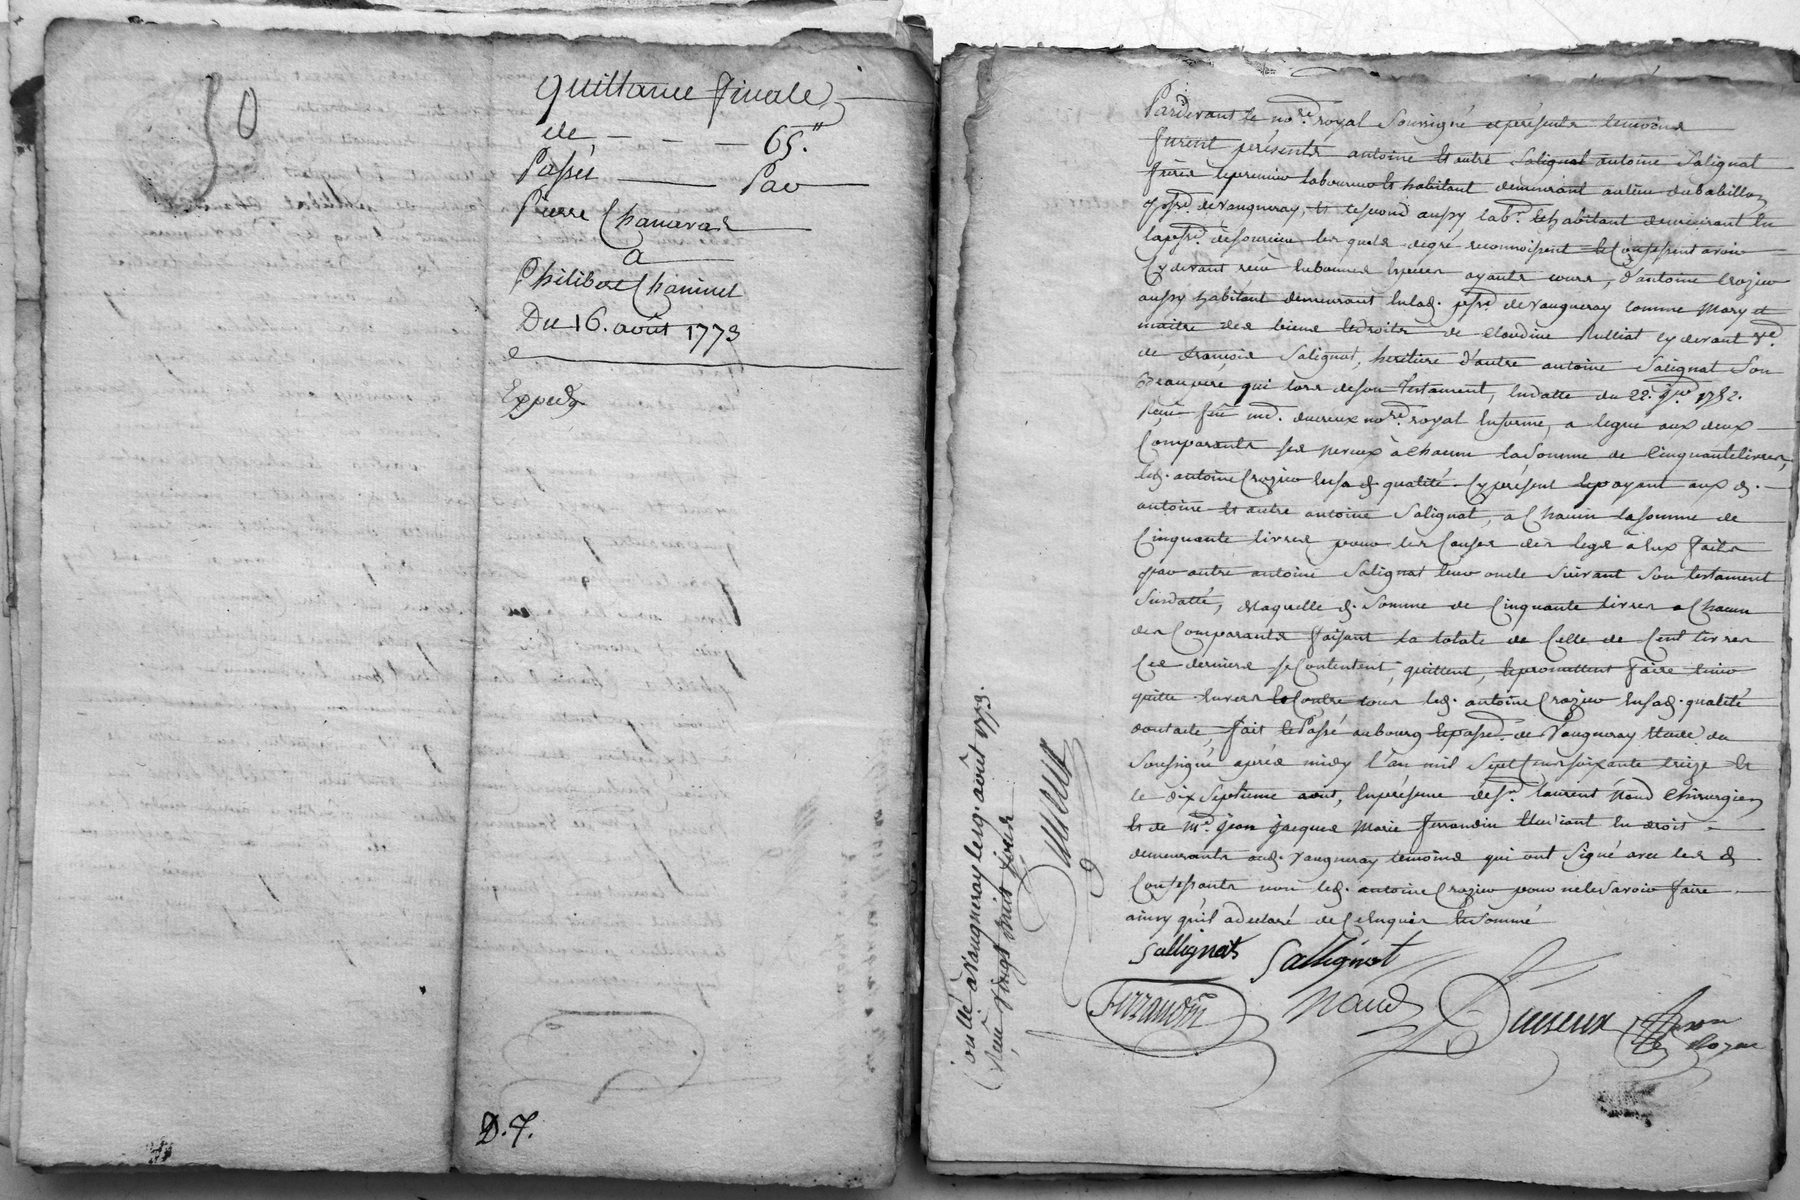 30
quittance finale
de — — — 65.ʺ
Passée — Par
Pierre Chanavas
a
Philibert Chaninet
Du 16. août 1773
Exped.
D. 7.
Pardevant le no.re royal soussigné & présents temoins
furent présents antoine et autre Salignat antoine Salignat
freres le premier laboureur et habitant demeurant au lieu du babillon
p.sse de Vaugneray, et le second aussy lab.r et habitant demeurant en
la p.sse de sourcieu lesquels de gré reconnoissent et confessent avoir
cy devant reçu en bonnes especes ayants cours, d'antoine Crozier
aussy habitant demeurant en lad. p.sse de Vaugneray comme mary et
maitre des biens et droits de Claudine Rulliat cy devant v.e
de françois Salignat, heritiere d'autre antoine Salignat son
beaupere qui lors de son testament, en datte du 22. 9.bre 1752.
Reçu feu me. duereux no.re royal en forme, a legué aux deux
Comparants ses neveux à chacun la somme de Cinquante livres,
led. antoine Crozier en sad. qualité cy présent et payant aux d.
antoine et autre antoine Salignat, a chacun la somme de
Cinquante livres pour les causes des legs à eux faits
par autre antoine Salignat leur oncle suivant son testament
susdatté, de laquelle d. somme de Cinquante livres a chacun
des Comparants faisant la totale de Celle de Cent livres
Ces derniers se Contentent, quittent, et promettent faire tenir
quitte envers et contre tous led. antoine Crozier en sad. qualité
dont acte, fait et Passé au bourg et p.sse de Vaugneray Etude du
soussigné après midy l'an mil sept cent soixante treize et
le dix septieme aout, en présence de s.r laurent naud Chirurgien
et de m.e jean jacques marie ferrandin Etudiant en droit
demeurants aud. Vaugneray temoins qui ont signé avec les d.
Confessants non led. antoine Crozier pour ne le savoir faire
ainsy qu'il a declaré de ce enquis et sommé
Sallignat Sallignat
Ferrandin naud
Controllé à Vaugneray le 19. août 1773.
Reçu vingt huit sols